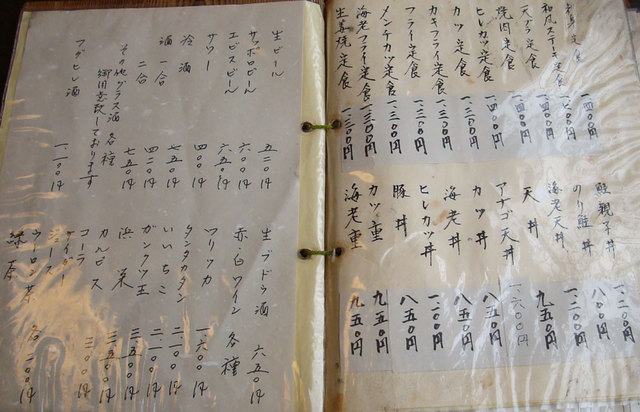 刺身定食
和風ステーキ定食
天プラ定食
焼肉定食
ヒレカツ定食
カツ定食
カキフライ定食
フライ定食
メンチカツ定食
海老フライ定食 一、三〇〇円
生姜焼定食 一、三〇〇円
鮭親子丼 一、二〇〇円
のり鮭丼 八〇〇円
海老天丼 一、二〇〇円
天丼 九五〇円
アナゴ天丼 一六〇〇円
カツ丼 八五〇円
海老丼 八五〇円
ヒレカツ丼 一、二〇〇円
豚丼 八五〇円
カツ重 九五〇円
海老重 九五〇円
生ビール 五二〇円
サッポロビール 六〇〇円
エビスビール 六五〇円
サワー 四〇〇円
冷酒 七五〇円
酒一合 四二〇円
二合 七五〇円
その他グラス酒各種
御用意致しております
フグヒレ酒 一、二〇〇円
生ブドウ酒 六五〇円
赤白ワイン 各種
ワリッカ 一六〇〇円
タンタカタン 二一〇〇円
いいちこ 二、一〇〇円
ガンクツ王 二、一〇〇円
浜栄 三五〇〇円
カルピス 三五〇円
コーラ 三〇〇円
サイダー
ジュース
ウーロン茶
緑茶 各二〇〇円